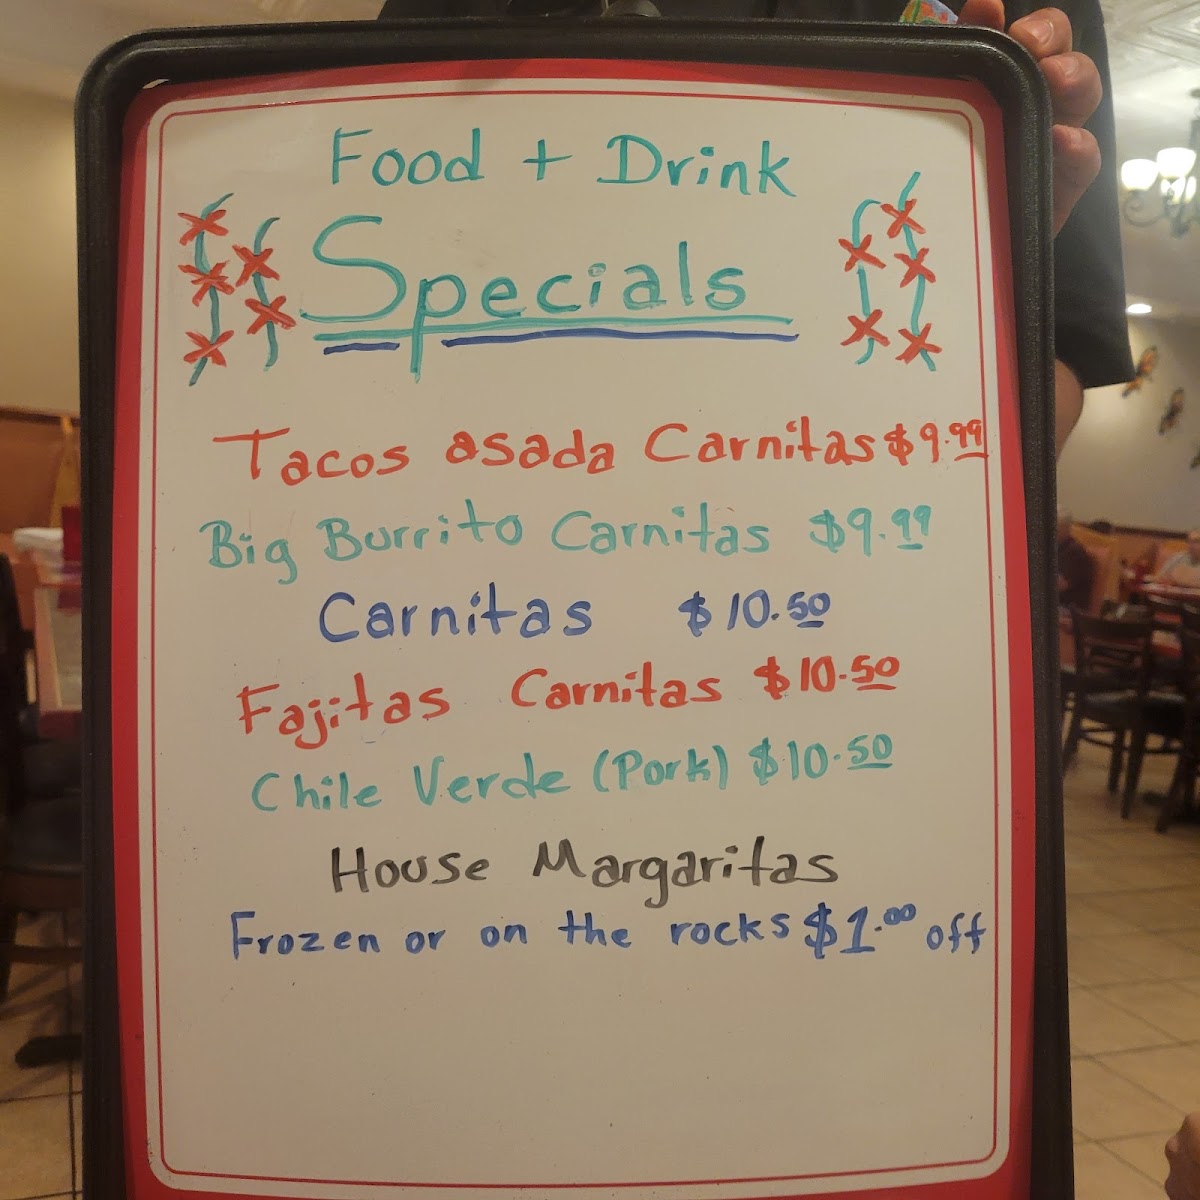 Food + Drink
Specials
Tacos asada Carnitas $9.99
Big Burrito Carnitas $9.99
Carnitas $10.50
Fajitas Carnitas $10.50
Chile Verde (Pork) $10.50
House Margaritas
Frozen or on the rocks $1.00 off